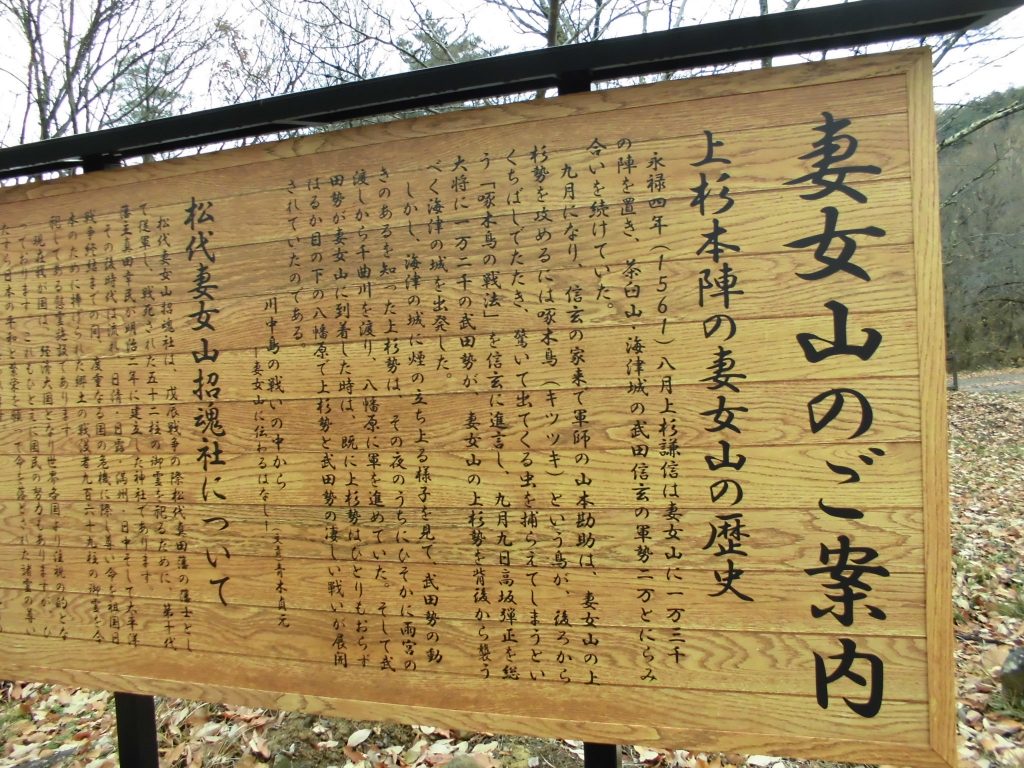 妻女山のご案内
上杉本陣の妻女山の歴史
永禄四年（1561）八月上杉謙信は妻女山に一万三千
の陣を置き、茶臼山・海津城の武田信玄の軍勢二万とにらみ
合いを続けていた。
九月になり、信玄の家来で軍師の山本勘助は、妻女山の上
杉勢を攻めるには啄木鳥（キツツキ）という鳥が、後ろから
くちばしでたたき、驚いて出てくる虫を捕らえてしまうとい
う「啄木鳥の戦法」を信玄に進言し、九月九日高坂弾正を総
大将に一万二千の武田勢が、妻女山の上杉勢を背後から襲う
べく海津の城を出発した。
しかし、海津の城に煙の立ち上る様子を見て、武田勢の動
きのあるを知った上杉勢は、その夜のうちにひそかに雨宮の
渡しから千曲川を渡り、八幡原に軍を進めていた。そして武
田勢が妻女山に到着した時は、既に上杉勢はひとりもおらず
はるか目の下の八幡原で上杉勢と武田勢の凄しい戦いが展開
されていたのである。
川中島の戦いの中から
―妻女山に伝わるはなし― 文責 青木貞元
松代妻女山招魂社について
松代妻女山招魂社は、戊辰戦争の際松代真田藩の藩士とし
て従軍し、戦死された五十二柱の御霊を祀るために、第十代
藩主真田幸民が明治二年に建立した神社であります。
その後時代は流れ、日清・日露・満州・日中そして大東洋
戦争終結までの間、度重なる国の危機に際し尊い命を祖国日
本のために捧げられた郷土の戦没者九百二十九柱の御霊を合
祀してある慰霊施設であります。
現在我が国は、経済大国となり世界各国より注視の的とな
っております。これもひとえに国民の努力も